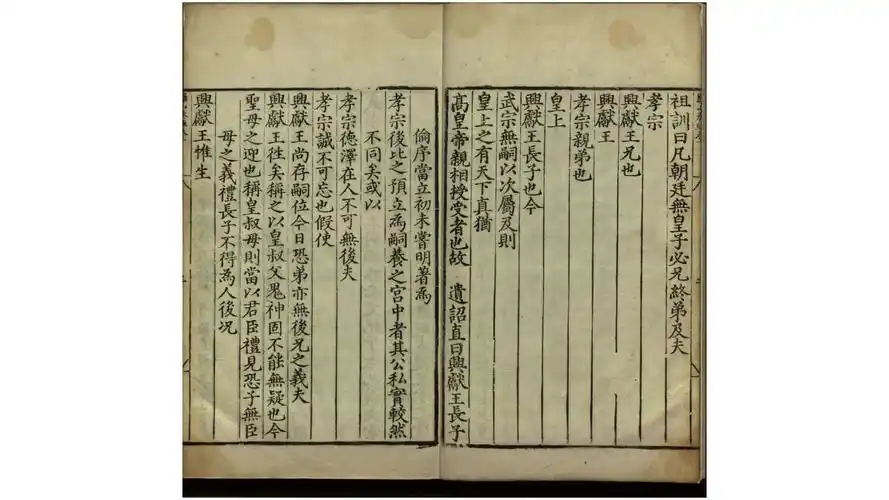 祖訓曰凡朝廷無皇子必兄終弟及夫
孝宗
興獻王兄也
興獻王
孝宗親弟也
皇上
興獻王長子也今
武宗無嗣以次屬及則
皇上之有天下真猶
高皇帝親相授受者也故 遺詔直曰興獻王長子
倫序當立初未嘗明著為
孝宗後比之預立為嗣養之宮中者其公私實較然
不同矣或以
孝宗德澤在人不可無後夫
孝宗誠不可忘也假使
興獻王尚存嗣位今日恐弟亦無後兄之義夫
興獻王徃矣稱之以皇叔父鬼神固不能無疑也今
聖母之迎也稱皇叔母則當以君臣禮見恐子無臣
母之義禮長子不得為人後况
興獻王惟生